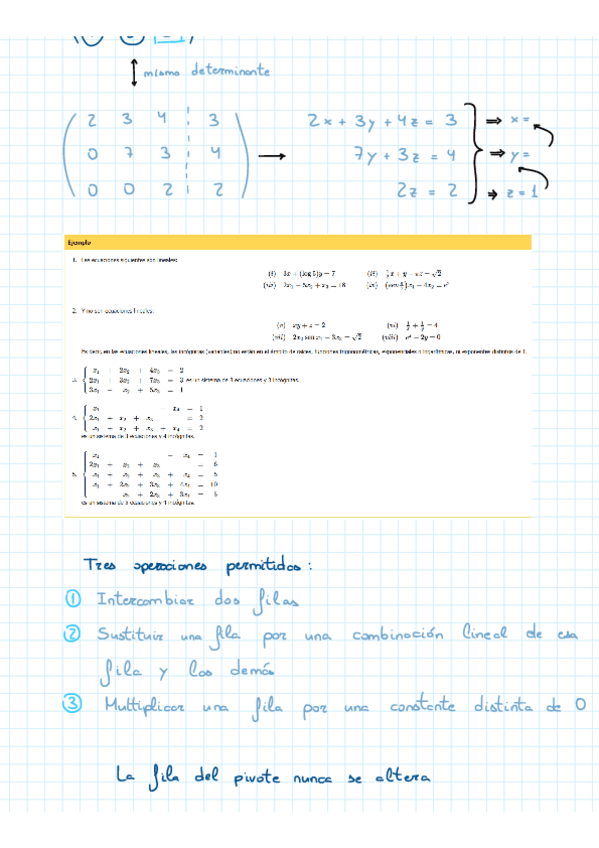 mismo determinante
2 3 4 3 2x + 3y + 4z = 3 ⇒ x =
0 7 3 4 → 7y + 3z = 4 ⇒ y =
0 0 2 2 2z = 2 ⇒ z = 1
Ejemplo
1. Las ecuaciones siguientes son lineales:
(i) 3x + (log 5)y = 7 (ii)
(iii) (iv)
2. Y no son ecuaciones lineales:
(v) xy + z = 2 (vi)
(vii) (viii)
Es decir, en las ecuaciones lineales, las incógnitas (variables) no están en el ámbito de raíces, funciones trigonométricas, exponenciales o logarítmicas, ni exponentes distintos de 1.
x₁ + 2x₂ + 4x₃ = 2
2x₁ + 3x₂ + 7x₃ = 3 es un sistema de 3 ecuaciones y 3 incógnitas.
3x₁ − x₂ + 5x₃ = 1
x₁ − x₄ = 1
2x₁ + x₂ + x₃ = 2
x₁ + x₂ + x₃ + x₄ = 2
es un sistema de 3 ecuaciones y 4 incógnitas.
es un sistema de 5 ecuaciones y 4 incógnitas.
Tres operaciones permitidas:
① Intercambiar dos filas
② Sustituir una fila por una combinación lineal de esa
fila y las demás
③ Multiplicar una fila por una constante distinta de 0
La fila del pivote nunca se altera